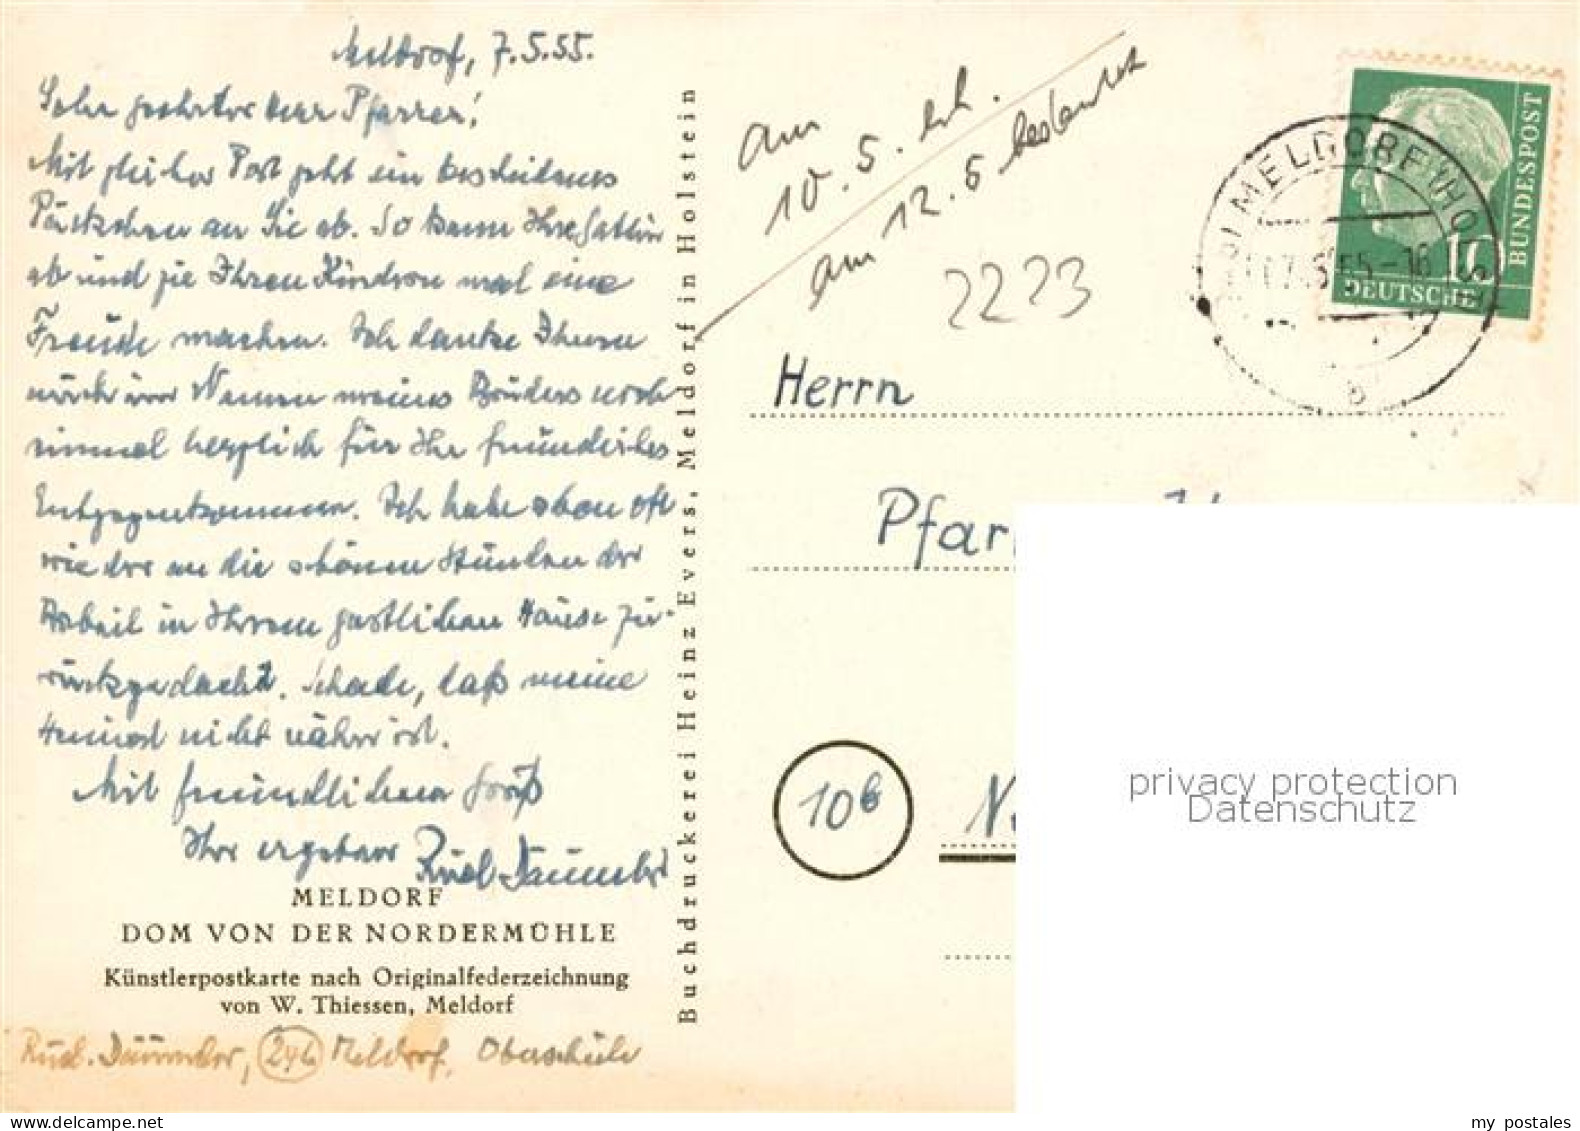 Meldorf, 7.5.55.
Sehr geehrter Herr Pfarrer!
Mit gleicher Post geht ein bescheidenes
Päckchen an Sie ab. So kann Ihre Gattin
ab und zu Ihren Kindern mal eine
Freude machen. Ich danke Ihnen
auch im Namen meines Bruders noch
einmal herzlich für Ihr freundliches
Entgegenkommen. Ich habe schon oft
wieder an die schönen Stunden der
Arbeit in Ihrem gastlichen Hause zu-
rückgedacht. Schade, daß meine
Heimat nicht näher ist.
Mit freundlichem Gruß
Ihr ergebener Rud. Däumler
MELDORF
DOM VON DER NORDERMÜHLE
Künstlerpostkarte nach Originalfederzeichnung
von W. Thiessen, Meldorf
Rud. Däumler, 24b Meldorf, Oberschule
Buchdruckerei Heinz Evers, Meldorf in Holstein
am
10.5. erh.
am 12.5 bedankt
2223
MELDORF (HOLST)
DEUTSCHE
BUNDESPOST
10
Herrn
Pfar
10b
privacy protection
Datenschutz
my postales